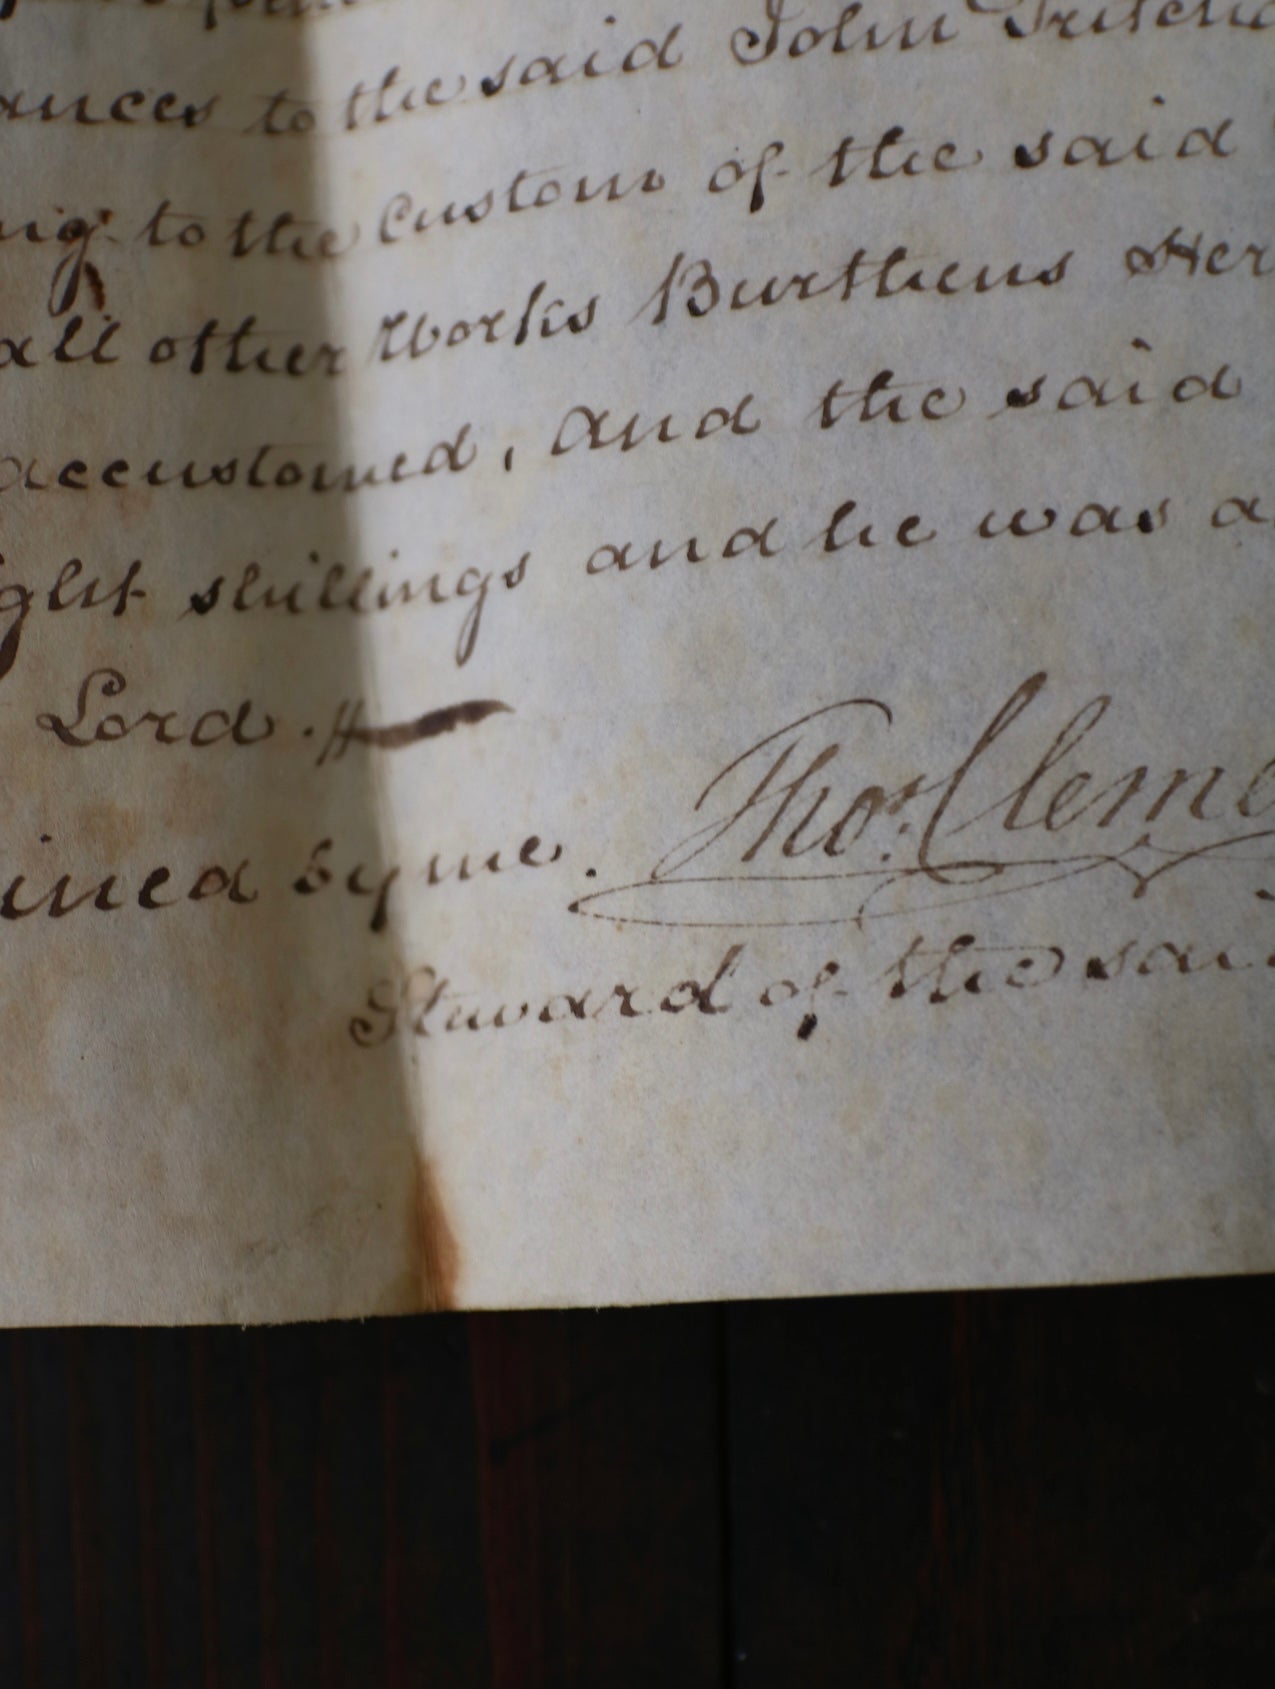 ances to the said John
ing to the Custom of the said
all other Works Burthens Her
accustomed, And the said
ght shillings and he was a
Lord.
ined by me. Thos. Cleme
Steward of the sai